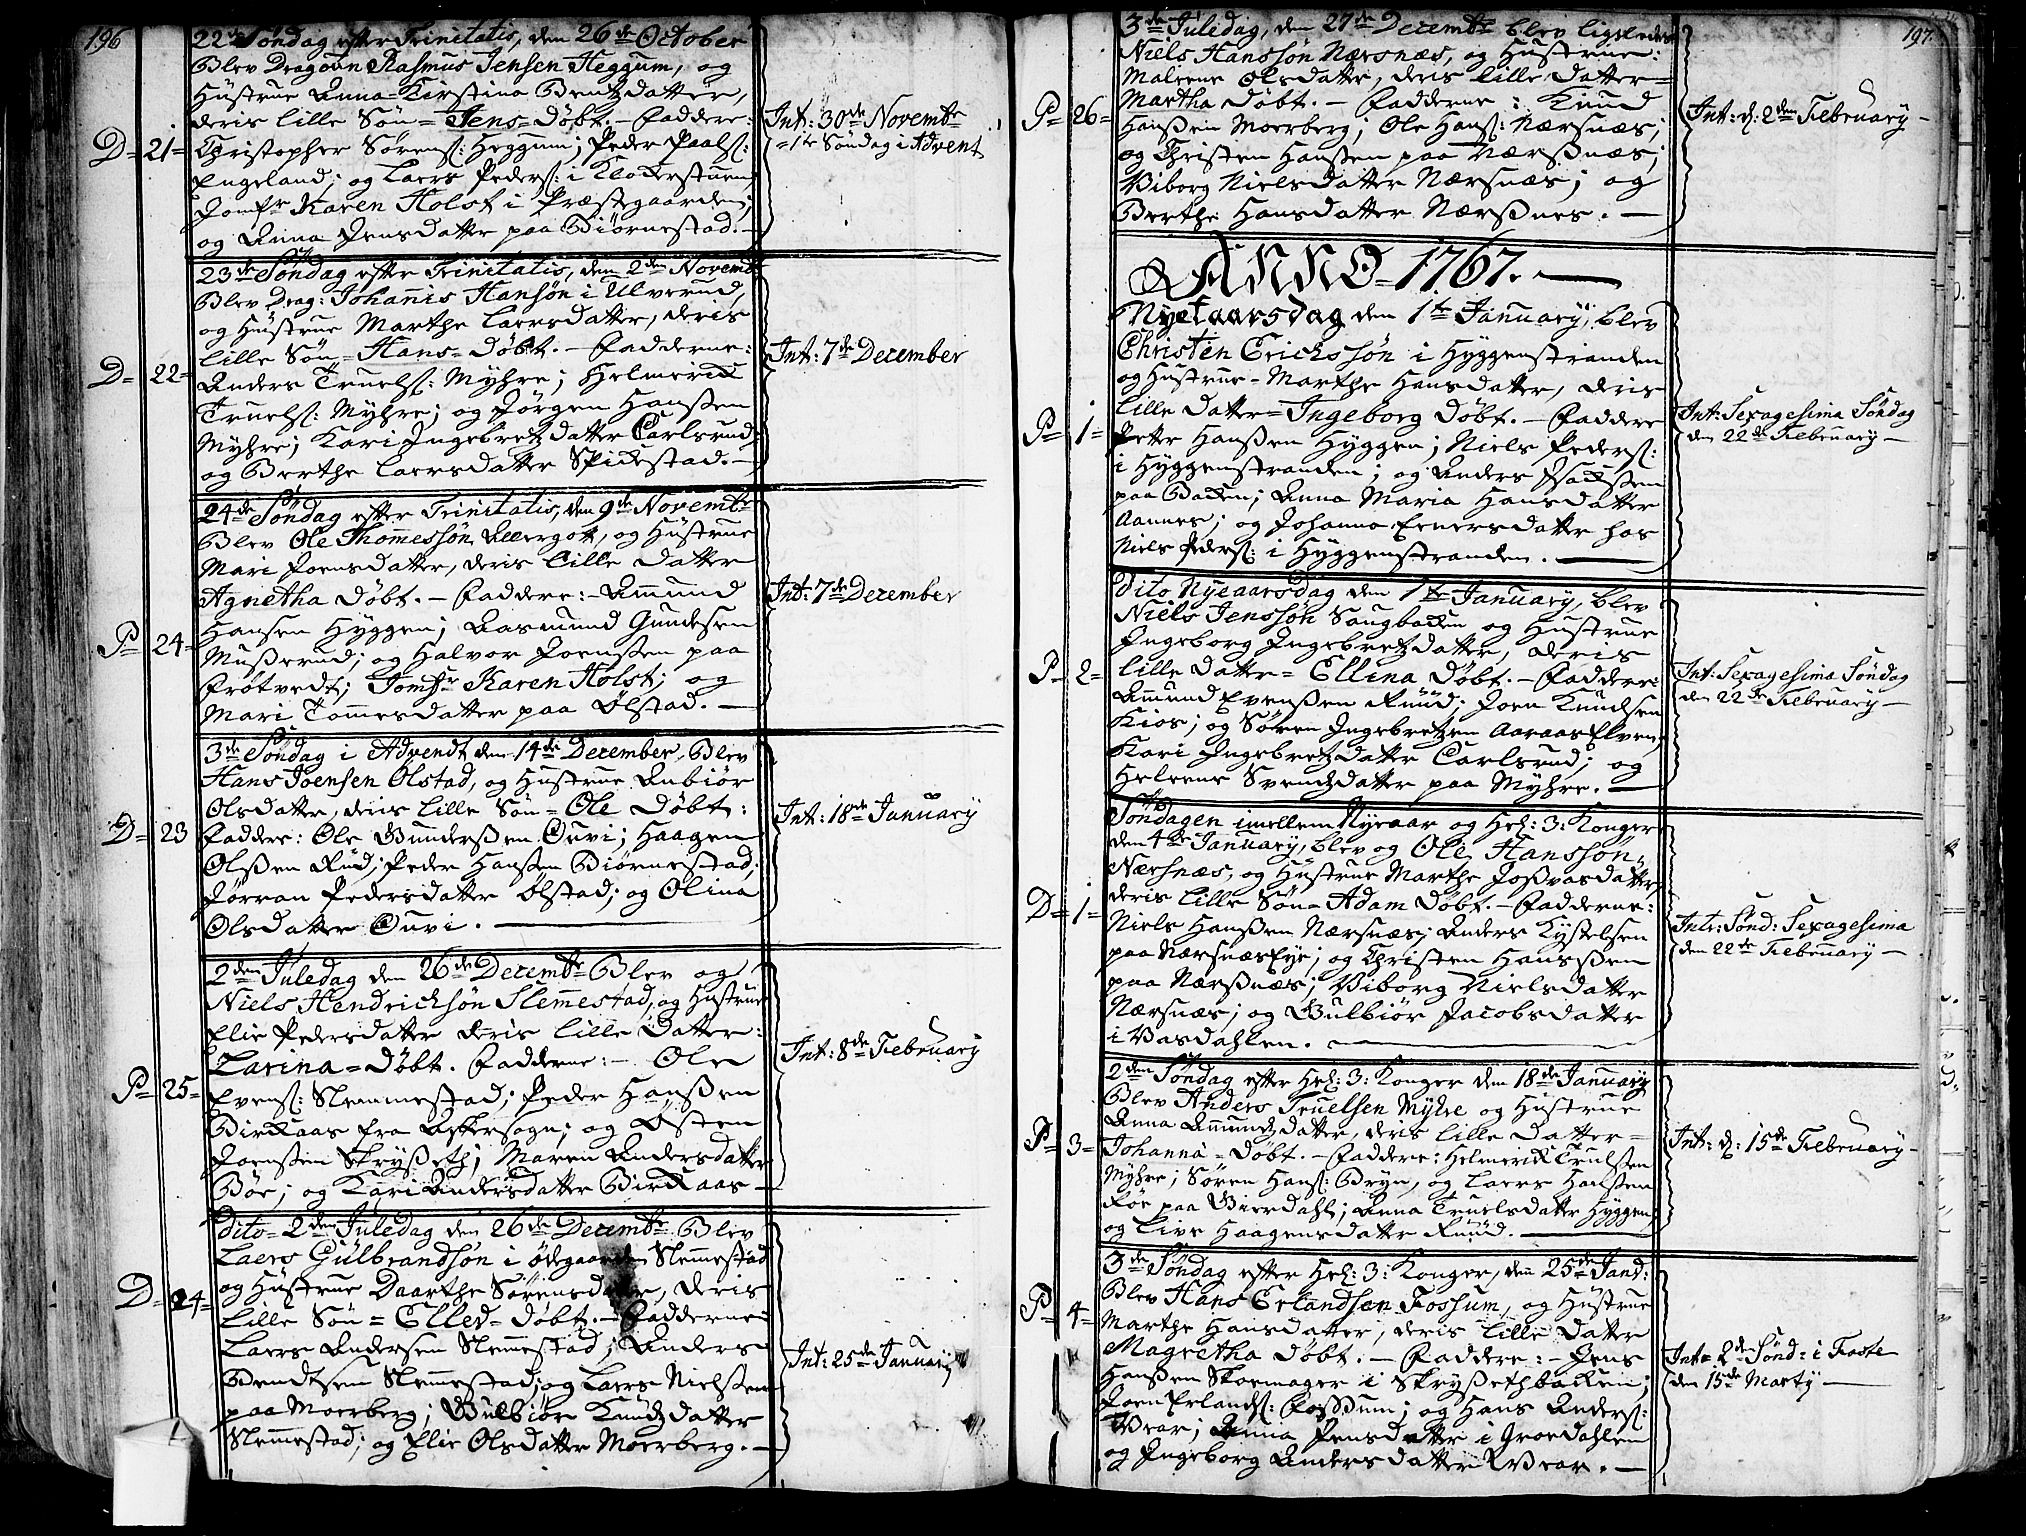 196
22de Söndag efter Trinitatis, den 26de October
Blev Dragoun Rasmus Jensen Heggum, og
Hustrue Anna Kirstina Bentzdatter,
deris lille Sön = Jens = Döbt. – Faddere:
D= 21= Christopher Sörens: Heggum; Peder Paals:
Engeland; og Laers Peders: i Klockerstuen,
Jomfr Karen Holst i Præstegaarden;
og Anna Jensdatter paa Biörnestad. –
Int: 30de Novembr
= 1te Söndag i Advent
23de Söndag efter Trinitatis, den 2den Novemb
Blev Drag: Johannis Hansön i Ulverud,
og Hustrue Marthe Laersdatter, deris
lille Sön = Hans = Döbt. – Fadderne:
D= 22= Anders Truels: Myhre; Helmerich
Truels: Myhre; og Jörgen Hansen
Myhre; Kari Ingebretzdatter Carlsrud;
og Berthe Laersdatter Spickestad. –
Int: 7de December
24de Söndag efter Trinitatis, den 9de Novembr
Blev Ole Thomessön Allergott, og Hustrue
Mari Joensdatter, deris lille Datter
Agnetha Döbt. – Faddere: – Amund
Hansen Hyggen; Aasmund Gundesen
P= 24= Musserud; og Halvor Joenssen paa
Frötvedt; Jomfr Karen Holst; og
Mari Tommesdatter paa Ølstad. –
Int: 7de December
3de Söndag i Advendt den 14de December, Blev
Hans Joensen Ölstad, og Hustrue Anbiör
Olsdatter, deris lille Sön = Ole Döbt:
D= 23 Faddere: Ole Gunderssen Ouvi; Haagen
Olssen Rud; Peder Hanssen Biörnestad;
Jörran Pedersdatter Ølstad; og Olina
Olsdatter Ouvi. –
Int: 18de January
2den Juledag den 26de Decembr Blev og
Niels Hendricksön Slemmestad, og Hustrue
Elie Pedersdatter deris lille Datter:
Zarina = Döbt. Fadderne: – Ole
P= 25= Evens: Slemmestad; Peder Hanssen
Birkaas fra Askersogn; og Østen
Joenssen Skrysseth; Maren Andersdatter
Böe; og Kari Andersdatter Birkaas –
Int: 8de February
Dito 2den Juledag den 26de Decembr Blev
Laers Gulbrandsön i ödegaarden Slemmestad
og Hustrue Daarthe Sörensdatter, deris
D= 24= lille Sön = Ellev = Döbt. – Fadderne:
Laers Andersen Slemmestad; Anders
Bendtsen Slemmestad; og Laers Nielssen
paa Moerberg; Gulbiör Knudzdatter
Slemmestad; og Elie Olsdatter Moerberg. –
Int: 25de January
197
3de Juledag, den 27de Decembr blev ligeledes
Niels Hanssön Nærsnæs, og Hustrue:
Malene Olsdatter, deris lille Datter =
P= 26= Martha Döbt. – Fadderne: Knud
Hanssen Moerberg; Ole Hans: Nærsnæs;
og Christen Hanssen paa Nærssnæs;
Viborg Nielsdatter Nærsnæs; og
Berthe Hansdatter Nærssnes. –
Int: d: 2den February –
ANNO 1767. –
Nyetaarsdag den 1te January, blev
Christen Erickssön i Hyggenstranden
og Hustrue – Marthe Hansdatter, deris
lille Datter = Ingeborg Döbt. – Faddere
P= 1= Petter Hanssen Hyggen; Niels Peders:
i Hyggenstranden; og Anders Isacksen
paa Backen; Anna Maria Hansdatter
Aannes; og Johanna Enersdatter hos
Niels Peders: i Hyggenstranden. –
Int: Sexagesima Söndag
den 22de February –
Dito Nyeaarsdag den 1te January, blev
Niels Jenssön Saugbacken og Hustrue
Ingeborg Ingebretzdatter, deris
P= 2= lille Datter = Ellina Döbt. – Faddere:
Amund Evenssen Ruud; Joen Knudsen
Kios; og Sören Ingebretzen Aaraas Elven,
Kari Ingebretzdatter Carlsrud; og
Helene Svendzdatter paa Myhre. –
Int: Sexagesima Söndag
den 22de February –
Söndagen imellem Nyeaar og Hel: 3: Konger
den 4de January, blev og Ole Hanssön
Nærsnæs, og Hustrue Marthe Jossvasdatter,
D= 1= deris lille Sön = Adam Döbt. – Fadderne:
Niels Hanssen Nærsnæs; Anders Kystelsen
paa Nærsnæs Eye; og Christen Hanssen
paa Nærssnæs; Viborg Nielsdatter
Nærsnæs; og Gulbiör Jacobsdatter
i Basdahlen. –
Intr: Sönd: Sexagesima
den 22de February –
2den Söndag efter Hel: 3: Konger den 18de January
Blev Anders Truelsen Myhre og Hustrue
Anna Amundzdatter, deris lille Datter =
P= 3= Johanna = Döbt. – Faddere: Helmerick Trulssen
Myhre; Sören Hans: Bryn, og Laers Hanssen
Röe paa Bierdahl; Anna Truelsdatter Hyggen;
og Live Haagensdatter Ruud. –
Int: d: 15de February –
3de Söndag efter Hel: 3: Konger, den 25de Janu:
Blev Hans Erlandsen Fossum, og Hustrue
P= 4= Marthe Hansdatter, deris lille Datter
Magretha Döbt. – Faddere: – Jens
Hanssen Skoemager i Skryssethbacken;
Joen Erlands: Fossum; og Hans Anders:
Wear; Anna Jensdatter i Groedahlen
og Ingeborg Andersdatter Wear. –
Int= 2de Sönd: i Faste
den 15de Marty –